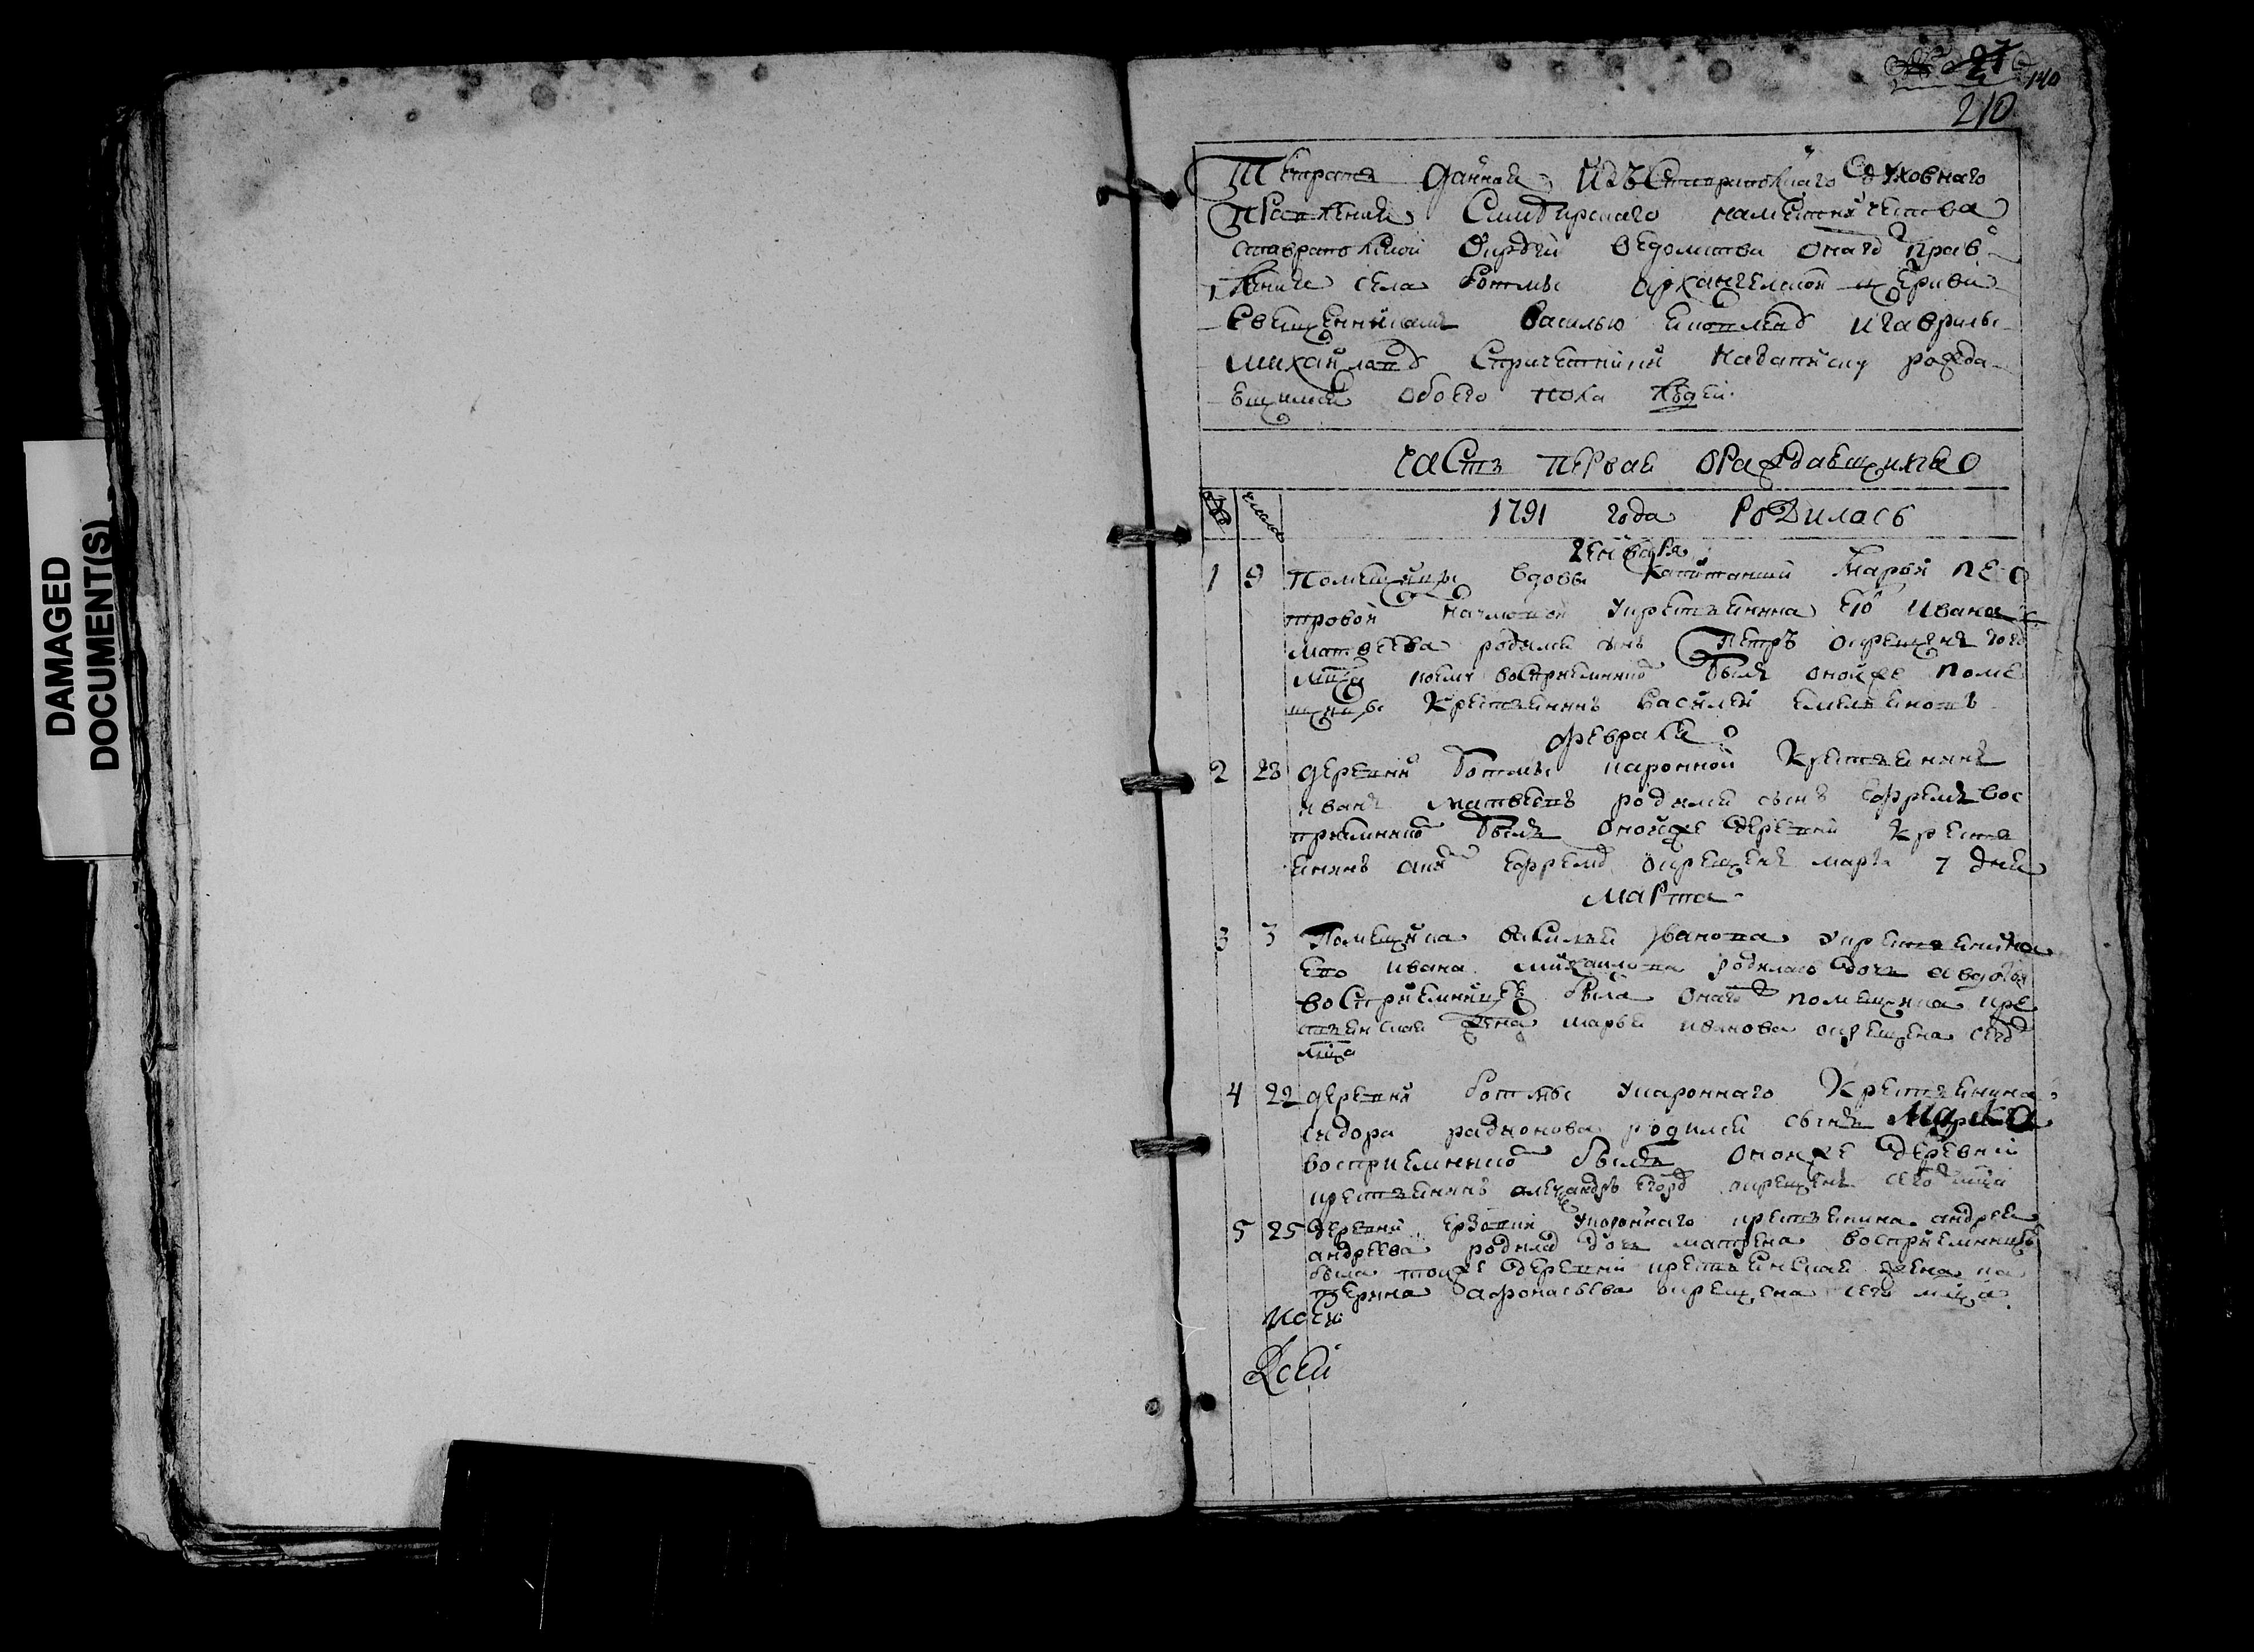 DAMAGED
DOCUMENT(S)
140
210
Тетрать данная изъ Ставропольскаго духовнаго
правления Симбирскаго наместничества
ставропольской округи ведомства оного прав
ления села Ботмы архангелской церкви
священникамъ Василью и Гаврилы
Михайлову с причетники на записку ражда
ющимся обоего пола людей
часть первая о раждающихся
число
1791 года родилось
генваря
1 9 Помещицы вдовы капитанши Марьи Пе
тровой Наумовой у крестьянина ее Ивана
Матвеева родился сынъ Петръ окрещенъ того
мца коему восприемникъ былъ оной же поме
щицы крестьянинъ Василей Емельяновъ
февраля
2 28 деревни Ботмы каронной крестьянинъ
иванъ матвеевъ родился сынъ Ефремъ вос
приемникъ былъ оной же деревни кресть
янинъ Ефремъ окрещенъ марта 7 дня
Марта
3 3 Помещика Василья Иванова у крестьянина
ево ивана михаилова родилась дочь авдотья
восприемницею была оного помещика кре
стьянская жена марья иванова окрещена сего
мца
4 22 деревни Ботмы у каронного Крестьянина
сидора радионова родился сынъ Марко
восприемникъ былъ оной же деревни
крестьянинъ александръ окрещенъ сего мца
5 25 деревни у каронного крестьянина андрея
андреева родилась дочь матрена восприемница
была той же деревни крестьянская жена ка
терина афонасьева окрещена сего мца